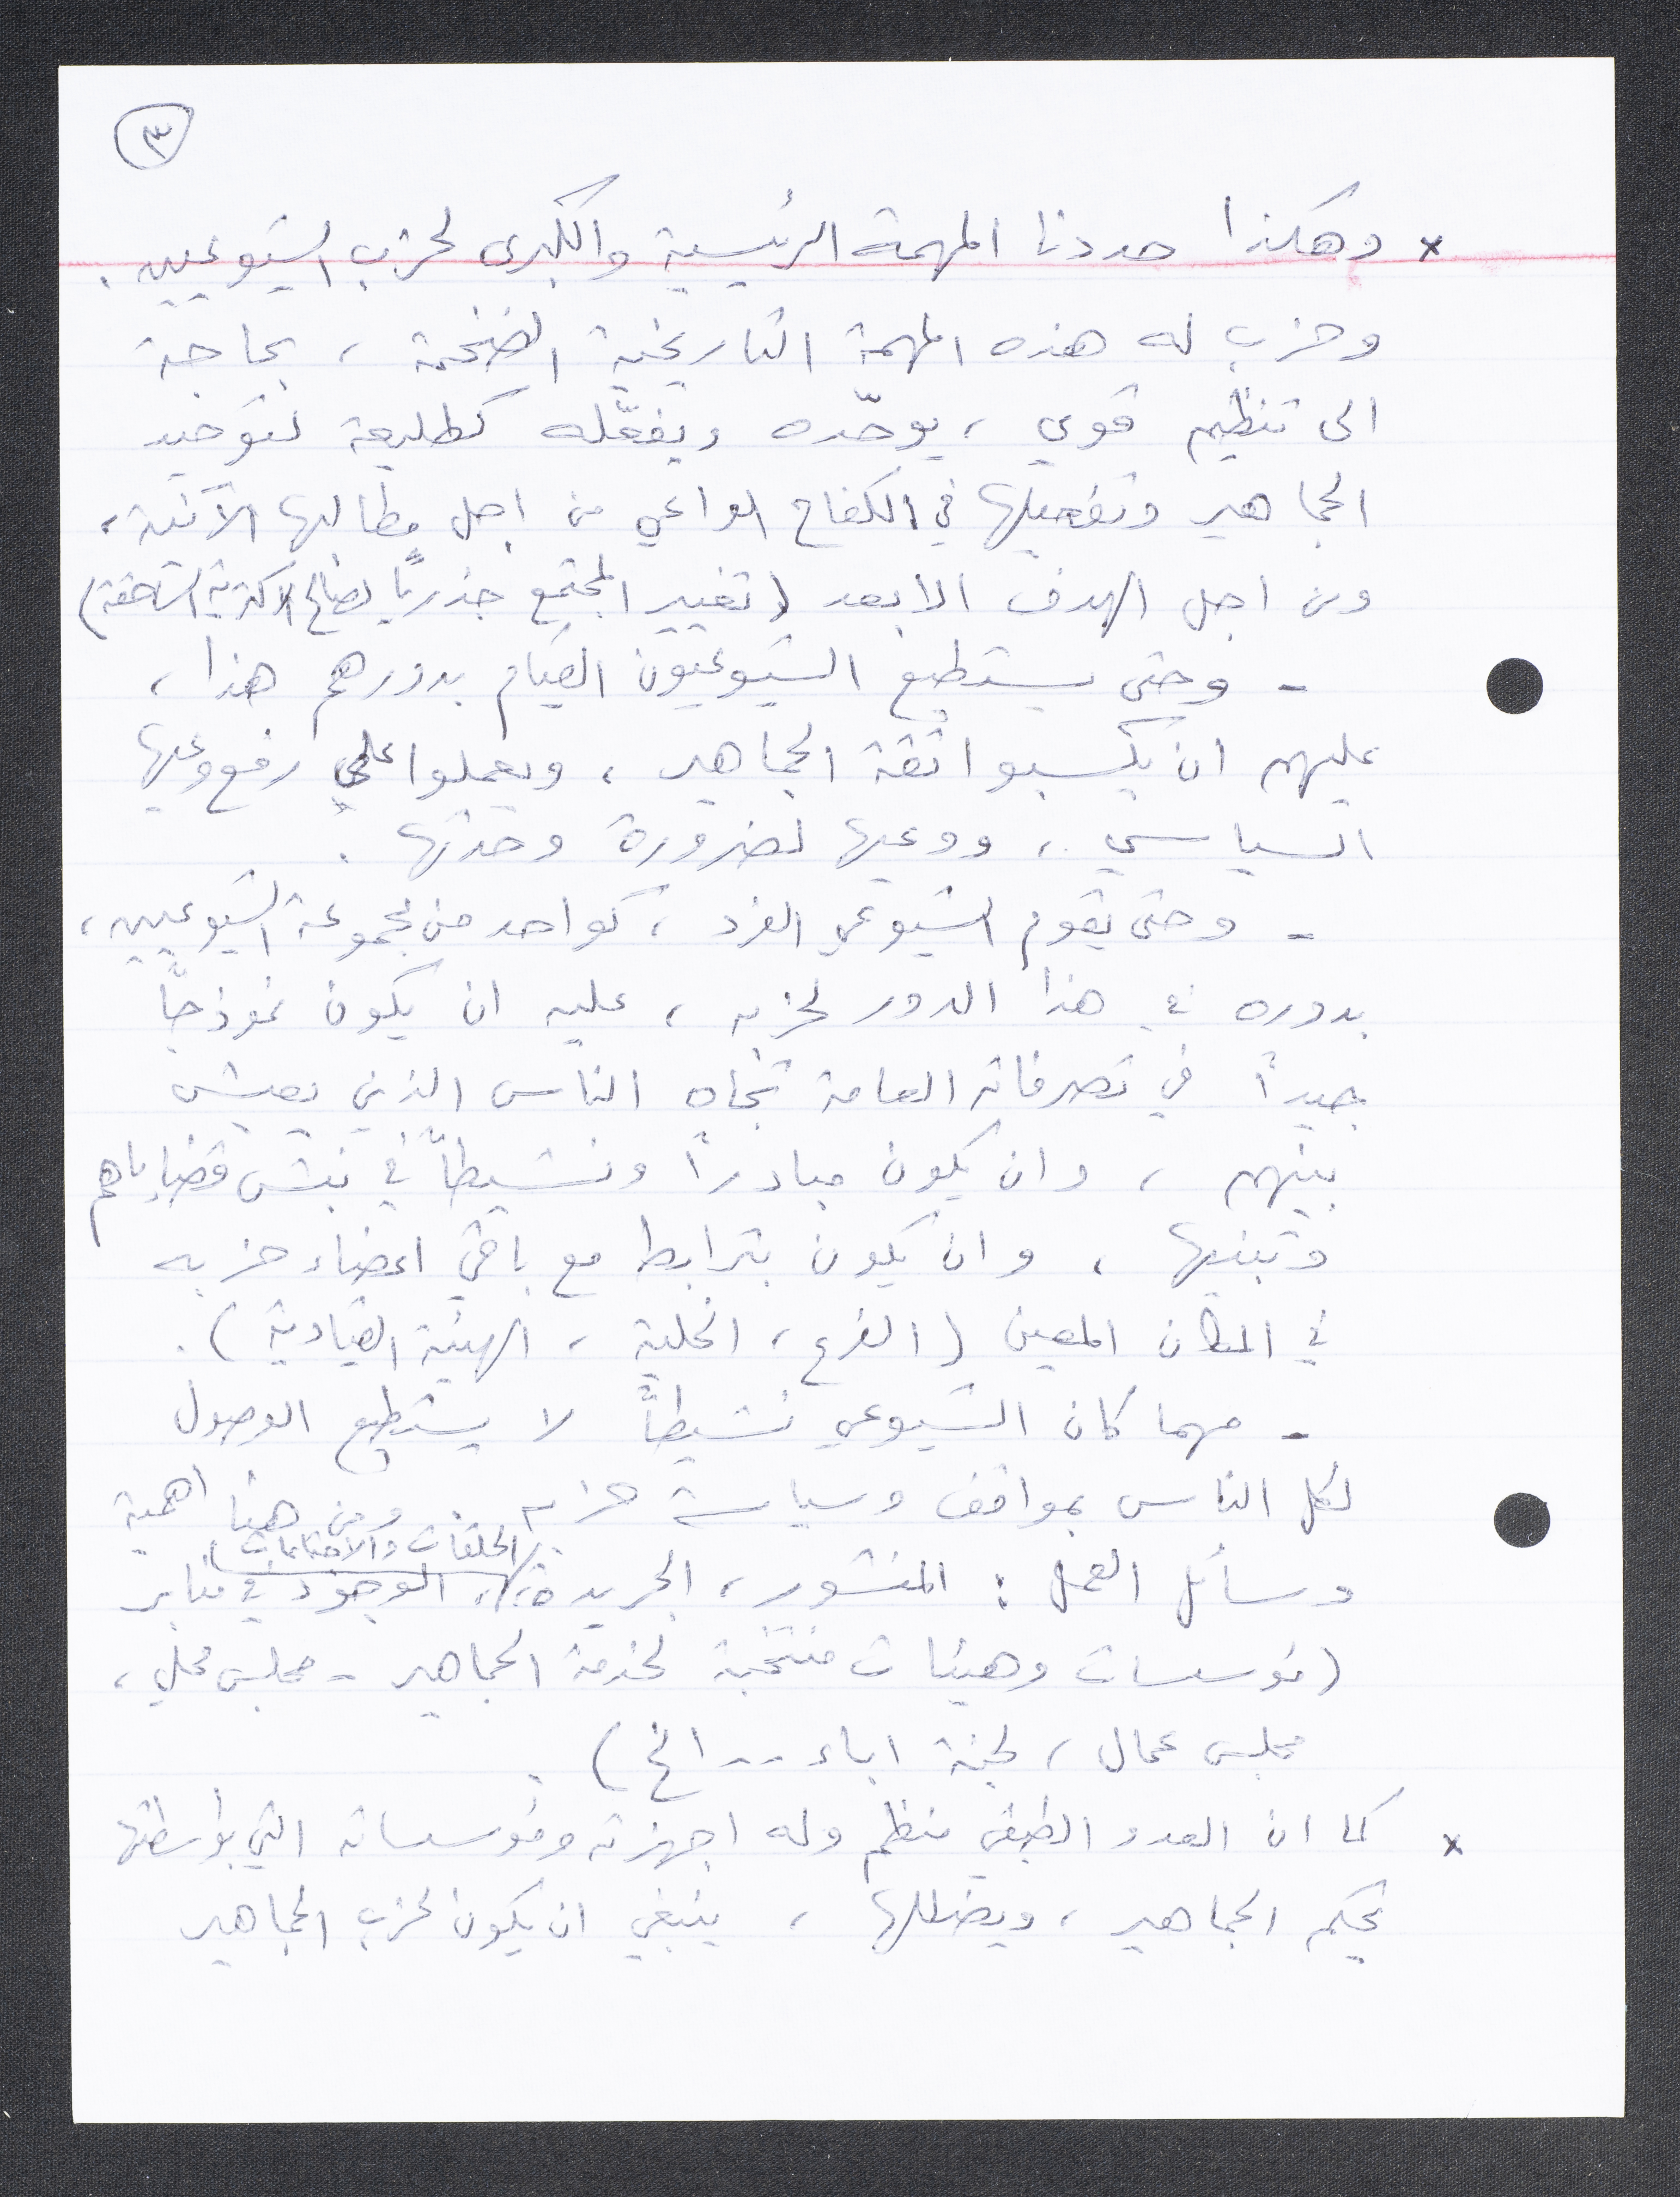 ٣
x وهكذا حددنا المهمة الرئيسية والكبرى لحزب الشيوعيين .
وحزب له هذه المهمة التاريخية الضخمة ، بحاجة
الى تنظيم قوي ، يوحّده ويفعّله كطليعة لتوحيد
الجماهير وتفعيلها في الكفاح الواعي من اجل مطالبها الآنية ،
ومن اجل الهدف الابعد (تغيير المجتمع جذرياً لصالح الاكثرية الساحقة)
- وحتى يستطيع الشيوعيون القيام بدورهم هذا ،
عليهم ان يكسبوا ثقة الجماهير ، ويعملوا على رفع وعيها
السياسي ، ووعيها لضرورة وحدتها .
- وحتى يقوم الشيوعي الفرد ، كواحد من مجموعة الشيوعيين ،
بدوره في هذا الدور لحزبه ، عليه ان يكون نموذجاً
جيداً في تصرفاته العامة تجاه الناس الذين يعيش
بينهم ، وان يكون مبادراً ونشيطاً في نبش قضاياهم
وتبنيها ، وان يكون بترابط مع باقي اعضاء حزبه
في المكان المعين (الفرع ، الخلية ، الهيئة القيادية) .
- مهما كان الشيوعي نشيطاً لا يستطيع الوصول
لكل الناس بمواقف وسياسة حزبه . ومن هنا اهمية
وسائل العمل : المنشور ، الجريدة ، الحلقات والاجتماعات ، الوجود في منابر
(مؤسسات وهيئات منتخبة لخدمة الجماهير - مجلس محلي ،
مجلس عمال ، لجنة اباء .. الخ) .
x كما ان العدو الطبقي منظم وله اجهزته ومؤسساته التي بواسطتها
يحكم الجماهير ، ويضللها ، ينبغي ان يكون لحزب الجماهير